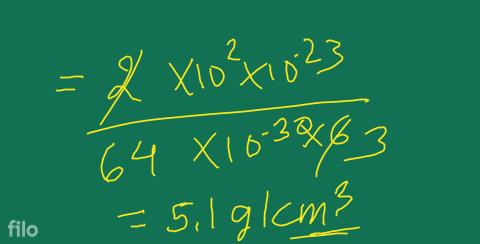 = 2 × 10² × 10⁻²³
64 × 10⁻³⁰ × 6 3
= 5.1 g/cm³
filo